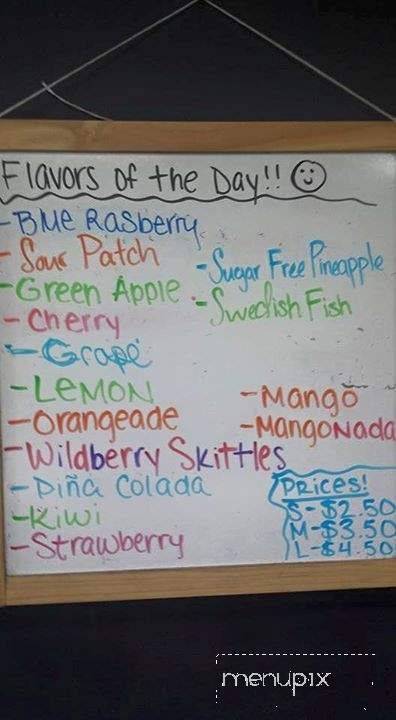 Flavors of the Day!!
- Blue Rasberry
- Sour Patch
- Green Apple
- Cherry
- Grape
- Lemon
- Orangeade
- Wildberry Skittles
- Piña Colada
- Kiwi
- Strawberry
- Sugar Free Pineapple
- Swedish Fish
- Mango
- MangoNada
Prices!
S-$2.50
M-$3.50
L-$4.50
menupix